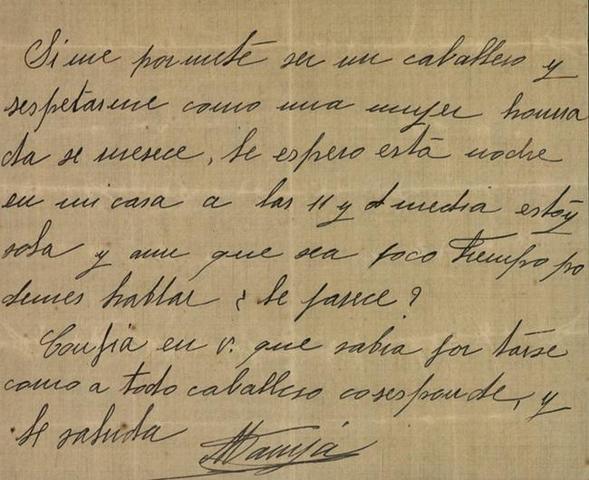 Si me permete ser un caballero y
respetarme como una mujer honra
da se merece, le espero está noche
en mi casa a las 11 y ½ media estoy
sola y aun que sea poco tiempo po
demes hablar ¿ le parece ?
Confia en v. que sabra por tarse
como a todo caballero coresponde, y
le saluda